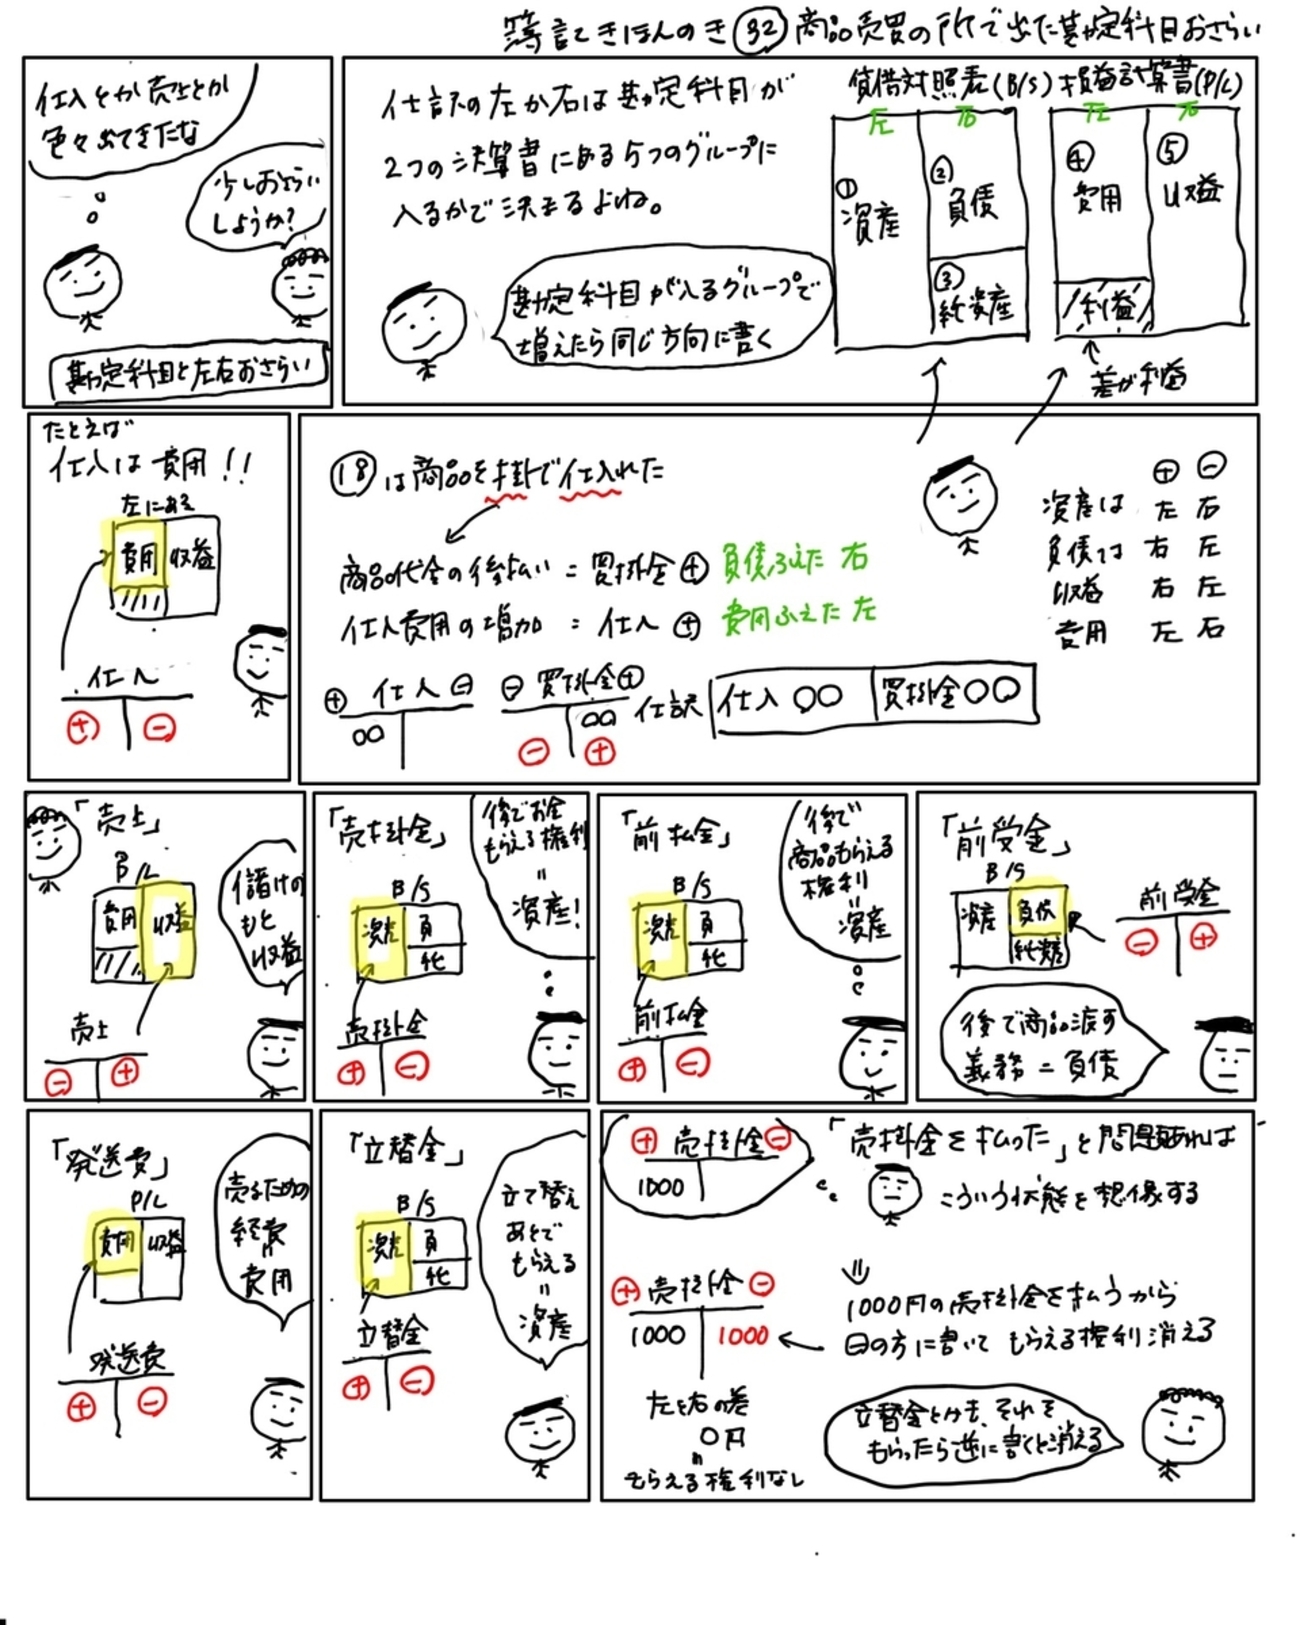 簿記きほんのき㉜商品売買の所で出た勘定科目おさらい
仕入とか売上とか
色々出てきたな
少しおさらい
しようか?
勘定科目と左右おさらい
仕訳の左か右は勘定科目が
2つの決算書にある5つのグループに
入るかで決まるよね。
勘定科目が入るグループで
増えたら同じ方向に書く
貸借対照表(B/S) 損益計算書(P/L)
左 右 左 右
① 資産
② 負債
③ 純資産
④ 費用
⑤ 収益
利益
差が利益
たとえば
仕入は費用!!
左にある
費用 収益
仕入
⊕ ⊖
⑱は商品を掛で仕入れた
商品代金の後払い = 買掛金⊕ 負債ふえた 右
仕入費用の増加 = 仕入 ⊕ 費用ふえた 左
⊕ 仕入 ⊖
○○
⊖ 買掛金⊕
○○
⊖ ⊕
仕訳 仕入 ○○ 買掛金○○
⊕ ⊖
資産は 左 右
負債は 右 左
収益 右 左
費用 左 右
「売上」
P/L
費用 収益
売上
⊖ ⊕
儲けの
もと
収益
「売掛金」
B/S
資産 負
純
売掛金
⊕ ⊖
後でお金
もらえる権利
=
資産!
「前払金」
B/S
資産 負
純
前払金
⊕ ⊖
後で
商品もらえる
権利
=
資産
「前受金」
B/S
資産 負債
純資産
前受金
⊖ ⊕
後で商品渡す
義務 = 負債
「発送費」
P/L
費用 収益
発送費
⊕ ⊖
売るための
経費
=
費用
「立替金」
B/S
資産 負
純
立替金
⊕ ⊖
立て替え
あとで
もらえる
=
資産
⊕ 売掛金⊖
1000
「売掛金を払った」と問題あれば
こういう状態を想像する
⇓
⊕ 売掛金 ⊖
1000 1000
1000円の売掛金を払うから
⊖の方に書いて もらえる権利消える
左と右の差
0円
=
もらえる権利なし
立替金とかも、それを
もらったら逆に書くと消える